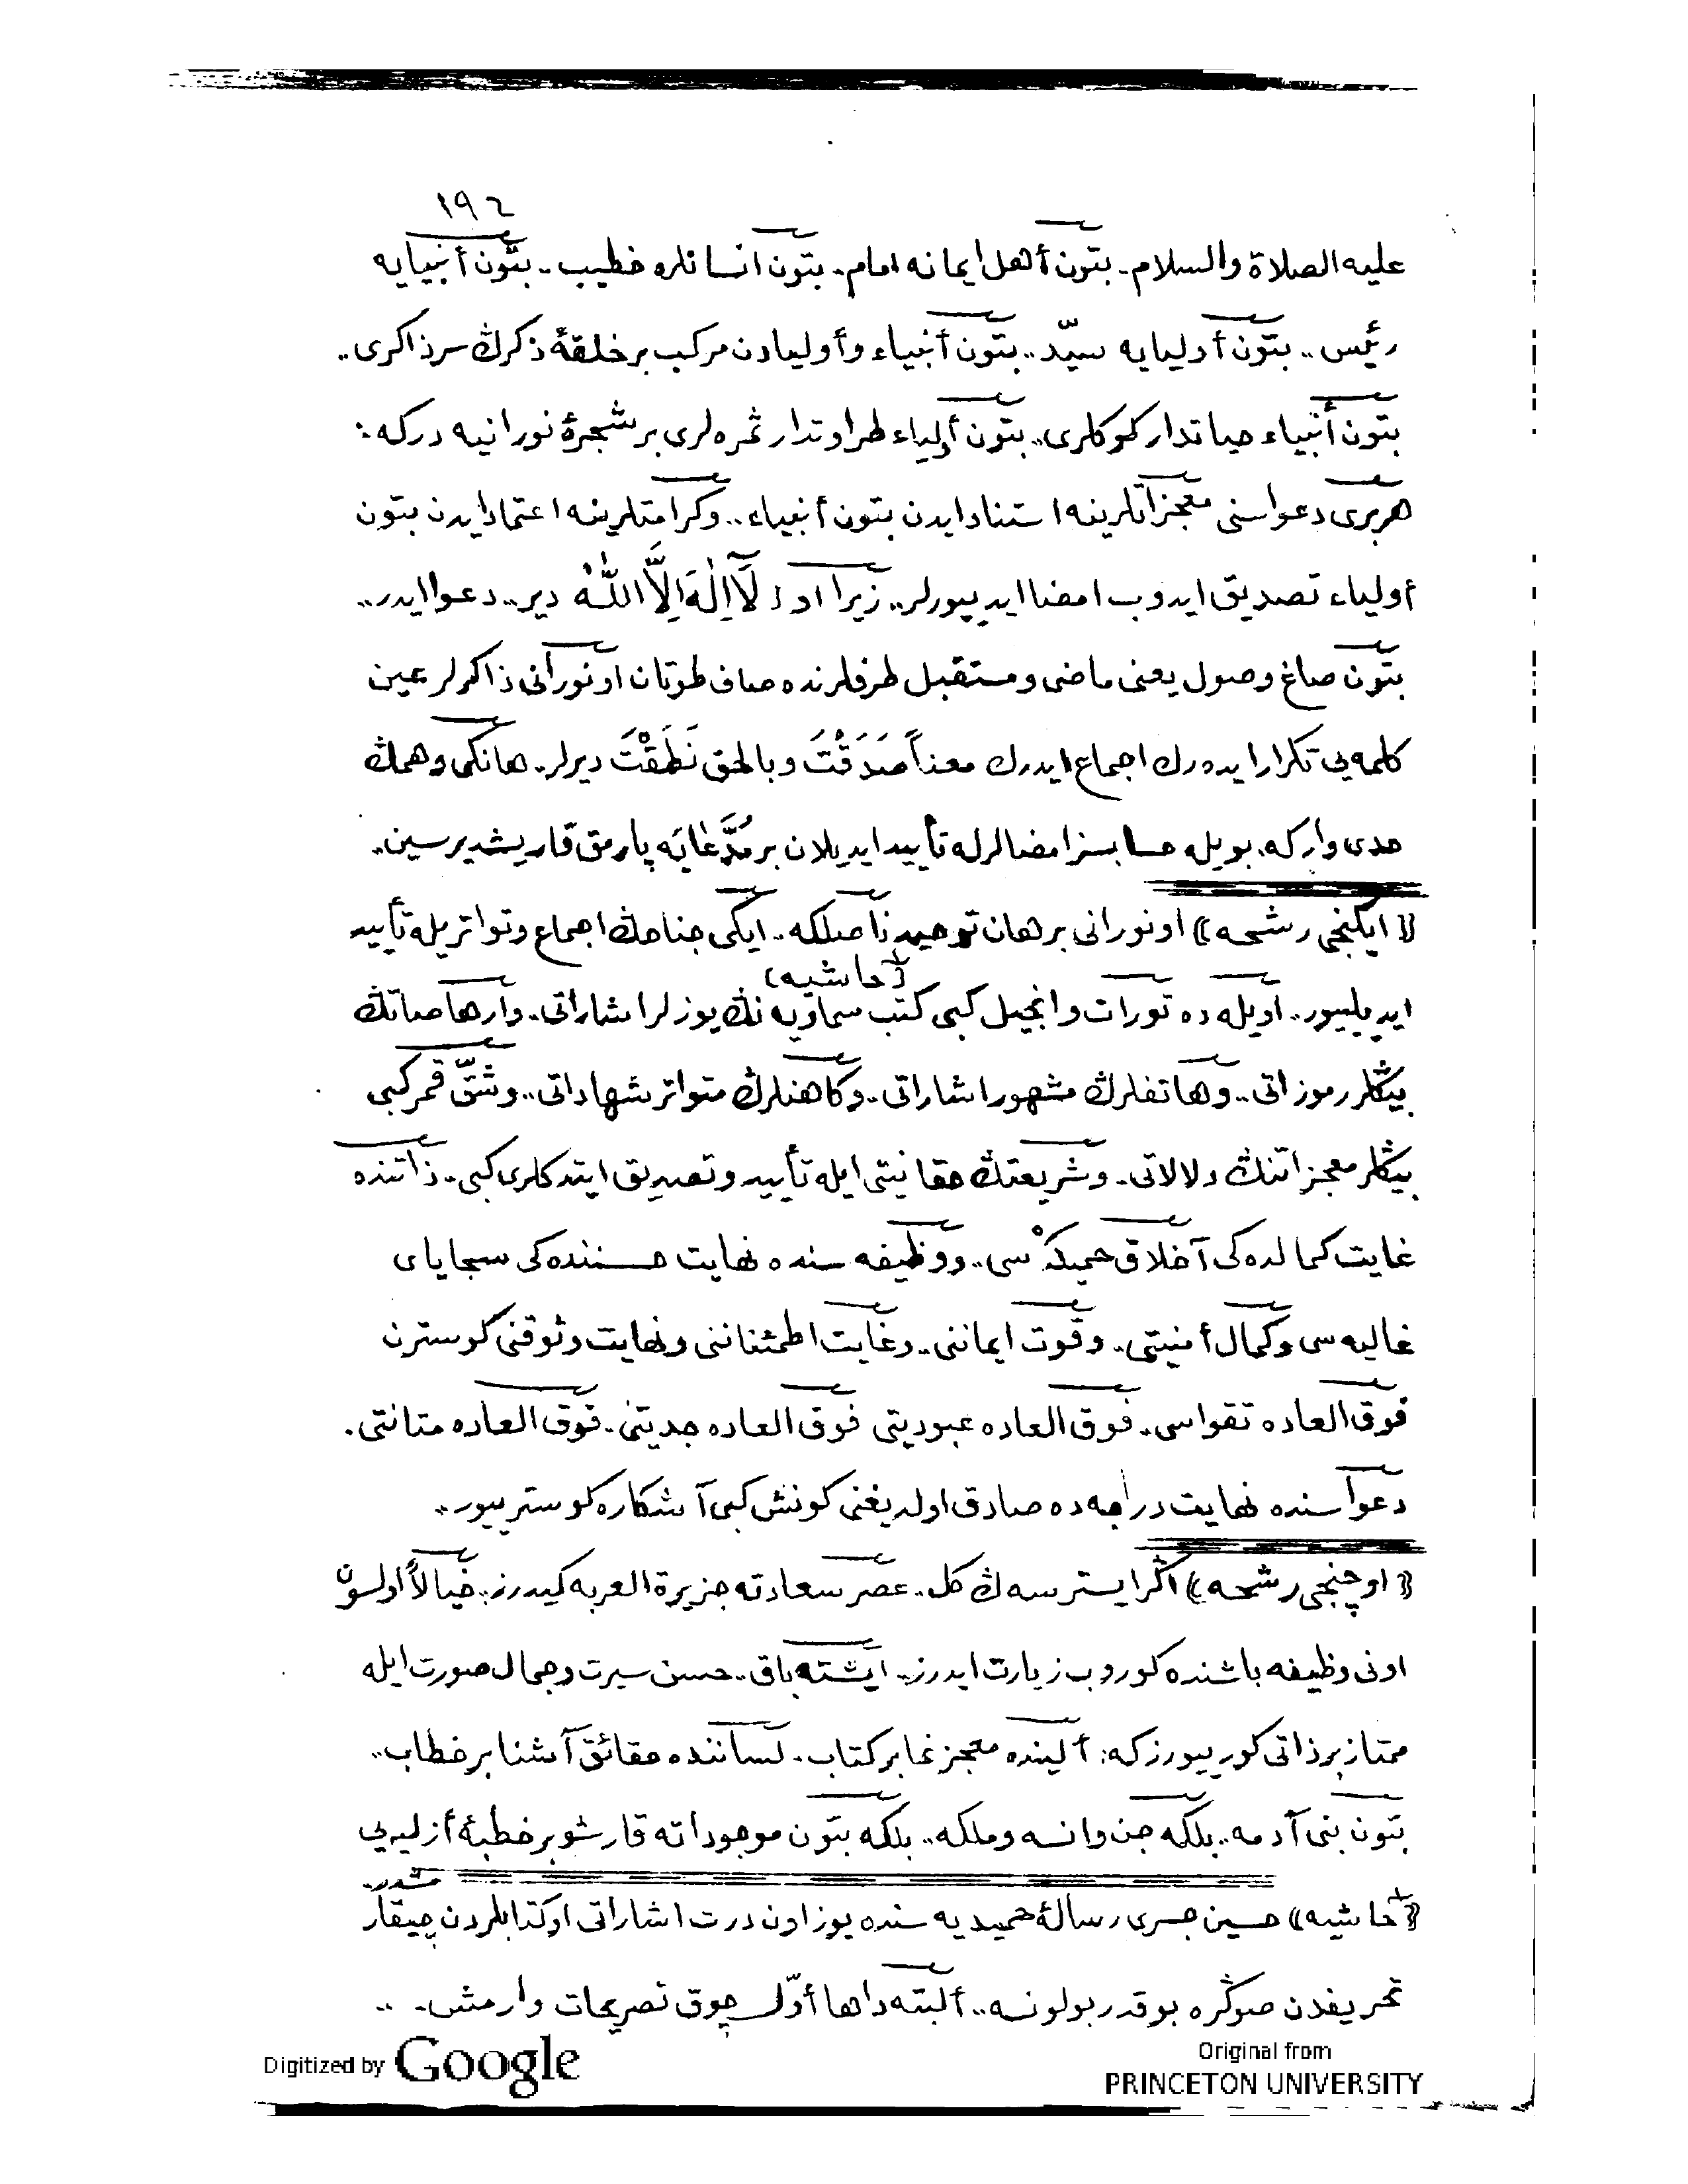 ١٩٢
عليه الصلاة والسلام.. بتون أهل ايمانه امام.. بتون انسانلره خطيب.. بتون أنبيايه
رئيس.. بتون أوليايه سيّد.. بتون أنبياء وأوليادن مركب بر خلقهٔ ذكرڭ سرذاكرى..
بتون أنبياء حياتدار كوكلرى.. بتون أولياء طراوتدار ثمره لرى بر شجرهٔ نورانيه دركه:
هربرى دعواسنى معجزاتلرينه استنادايدن بتون أنبياء.. وكرامتلرينه اعتمادايدن بتون
أولياء تصديق ايدوب امضا ايدييورلر.. زيرا او: لَآ اِلٰهَ اِلَّا اللّٰهْ دير.. دعوا ايدر..
بتون صاغ وصول يعنى ماضى ومستقبل طرفلرنده صاف طوتان او نورانى ذاكرلر عين
كلمه يى تكرار ايده رك اجماع ايدرك معناً صَدَقْتَ و بالحق نَطَقْتَ ديرلر.. هانكى وهمڭ
حدى واركه. بويله حسابسز امضالرله تأييد ايديلان بر مُدَّعٰايَه پارمق قاريشديرسين.
﴿ايكنجى رشحه﴾ او نورانى برهان توحيد ناصلكه.. ايكى جناحڭ اجماع وتواتريله تأييد
(حاشيه)
ايديلييور.. اويله ده تورات وانجيل كبى كتب سماويه نڭ يوزلر اشاراتى.. وارهاصاتڭ
بيڭلر رموزاتى.. وهاتفلرڭ مشهور اشاراتى.. وكاهنلرڭ متواتر شهاداتى.. وشقّ قمر كبى
بيڭلر معجزاتنڭ دلالاتى.. وشريعتڭ حقانيتى ايله تأييد وتصديق ايتدكلرى كبى.. ذاتنده
غايت كمالده كى آخلاق حميده سى.. ووظيفه سنده نهايت حسننده كى سجاياى
غاليه سى وكمال أمنيتى.. وقوت ايماننى.. وغايت اطمئناننى ونهايت وثوقنى كوسترن
فوق العاده تقواسى.. فوق العاده عبوديتى فوق العاده جديتى.. فوق العاده متانتى.
دعواسنده نهايت درجه ده صادق اولديغنى كونش كبى آشكاره كوستريیور..
﴿اوچنجى رشحه﴾ اڭر ايسترسه ڭ كل.. عصر سعادته جزيرة العربه كيدرز.. خيالاً اولسون
اونى وظيفه باشنده كوروب زيارت ايدرز.. ايشته باق.. حسن سيرت وجمال صورت ايله
ممتاز برذاتى كورييورزكه: ألينده معجزنما بر كتاب.. لساننده حقائق آشنا بر خطاب..
بتون بنى آدمه.. بلكه جن وانسه وملكه.. بلكه بتون موجوداته قارشو بر خطبهٔ أزليه يى
﴿حاشيه﴾ حسين جسرى رسالهٔ حميديه سنده يوز اون درت اشاراتى او كتابلردن چيقارمشدر..
تحريفدن صوڭره بوقدر بولونسه.. ألبته داها أوّل چوق تصريحات وارمش.. ..
Digitized by Google
Original from
PRINCETON UNIVERSITY